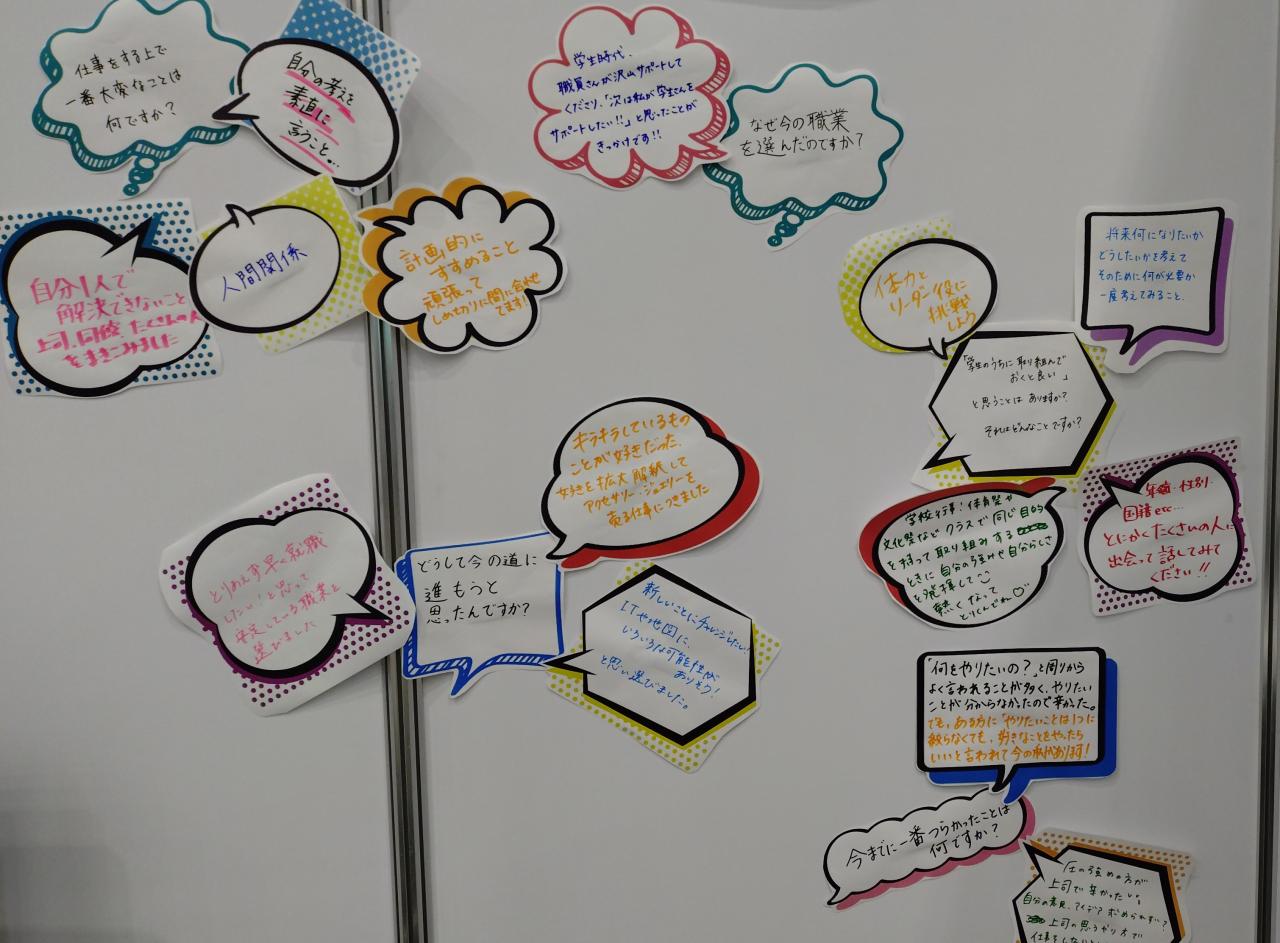 仕事をする上で
一番大変なことは
何ですか?
自分の考えを
素直に
言うこと。
自分1人で
解決できないこと
上司、同僚、たくさんの人
をまきこみました
人間関係
計画的に
すすめること
頑張って
しめきりに間に合わせ
てます!
学生時代、
職員さんが沢山サポートして
くださり、「次は私が学生さんを
サポートしたい!!」と思ったことが
きっかけです!!
なぜ今の職業
を選んだのですか?
体力と
リーダー役に
挑戦
しよう
将来何になりたいか
どうしたいかを考えて
そのために何が必要か
一度考えてみること、
「学生のうちに取り組んで
おくと良い」
と思うことはありますか?
それはどんなことですか?
学校行事!体育祭や
文化祭など クラスで同じ目的
を持って取り組みする
ときに自分の強みや自分らしさ
を発揮して
熱くなって
とりくんでね♡
年齢・性別・
国籍etc…
とにかくたくさんの人に
出会って話してみて
ください!!
キラキラしているもの
ことが好きだった。
好きを拡大解釈して
アクセサリー・ジュエリーを
売る仕事につきました
とりあえず早く就職
したい!と思って
安定している職業と
選びました
どうして今の道に
進もうと
思ったんですか?
新しいことにチャレンジしたい!
ITや地図に、
いろいろな可能性が
ありそう!
と思い選びました。
「何をやりたいの?」と周りから
よく言われることが多く、やりたい
ことが分からなかったので辛かった。
でも、ある方に「やりたいことは1つに
絞らなくても、好きなことをやったら
いいと言われて今の私があります!
今までに一番つらかったことは
何ですか?
圧の強めの方が
上司で辛かった
自分の意見、アイデア求められず…?
上司の思うやり方で